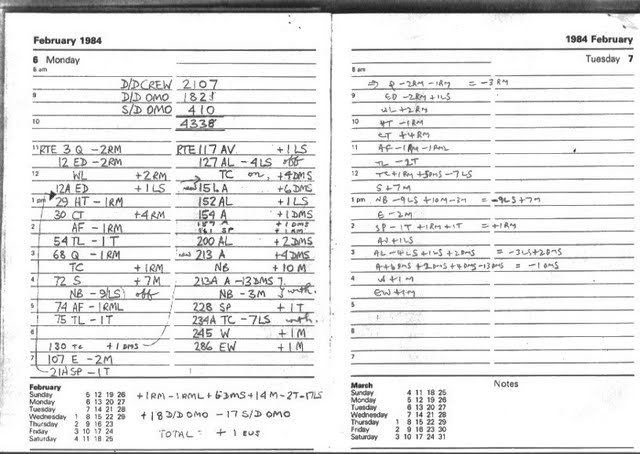 February 1984
6 Monday
8 am
D/D CREW 2107
9
D/D OMO 1821
S/D OMO 410
10
4338
11 RTE 3 Q -2RM
12 ED -2RM
12 WL +2RM
12A ED +1LS
1 pm 29 HT -1RM
30 CT +4RM
2 AF -1RM
54 TL -1T
3 68 Q -1RM
TC +1RM
4 72 S +7M
NB -9(LS) off
5 74 AF -1RML
75 TL -1T
6
130 TC +1DMS
7 107 E -2M
21A SP -1T
RTE 117 AV +1LS
127 AL -4LS off
TC on +4DMS
new 151 A +6DMS
152 AL +1LS
154 A +1DMS
157 A +1DMS
161 SP +1RM
200 AL +2DMS
new 213 A +4DMS
NB +10M
213A A -13DMS
NB -3M } with.
228 SP +1T
234A TC -7LS with.
245 W +1M
286 EW +1M
February
Sunday 5 12 19 26
Monday 6 13 20 27
Tuesday 7 14 21 28
Wednesday 1 8 15 22 29
Thursday 2 9 16 23
Friday 3 10 17 24
Saturday 4 11 18 25
+1RM -1RML +6DMS +14M -2T -17LS
+18 D/D OMO -17 S/D OMO
TOTAL = +1 BUS
1984 February
Tuesday 7
8 am
⇒ Q -2RM -1RM = -3RM
9 ED -2RM +1LS
WL +2RM
10 HT -1RM
CT +4RM
11 AF -1RM -1RML
TL -2T
12 TC +1RM +5DMS -7LS
S +7M
1 pm NB -9LS +10M -3M = -9LS +7M
E -2M
2 SP -1T +1RM +1T = +1RM
AV +1LS
3 AL -4LS +1LS +2DMS = -3LS +2DMS
A +6DMS +2DMS +4DMS -13DMS = -1DMS
4 W +1M
EW +1M
5
6
7
March
Sunday 4 11 18 25
Monday 5 12 19 26
Tuesday 6 13 20 27
Wednesday 7 14 21 28
Thursday 1 8 15 22 29
Friday 2 9 16 23 30
Saturday 3 10 17 24 31
Notes